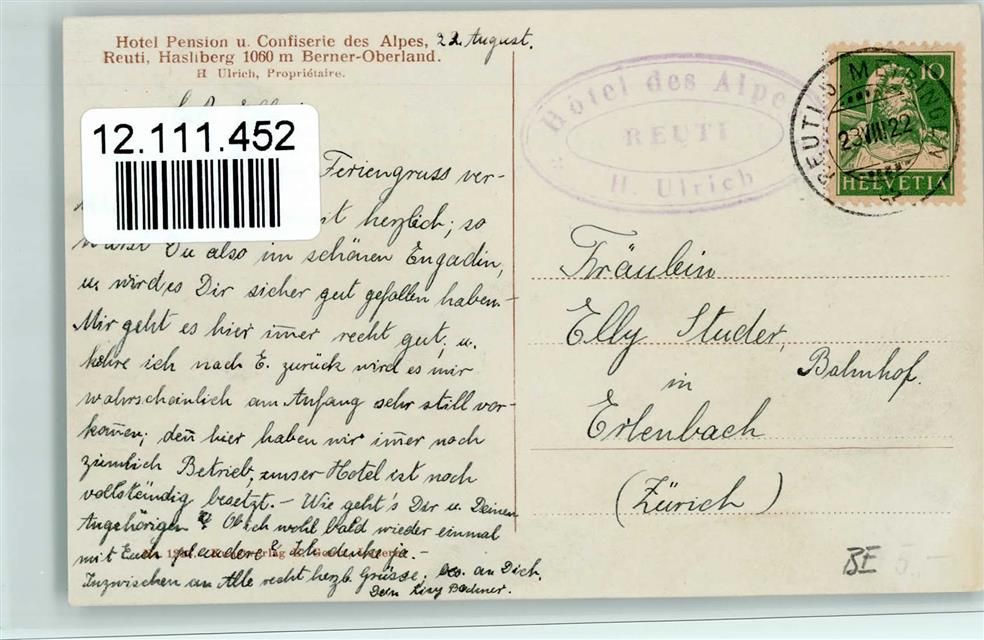 Hotel Pension u. Confiserie des Alpes,
Reuti, Hasliberg 1060 m Berner-Oberland.
H Ulrich, Propriétaire.
22. August.
12.111.452
Feriengruss ver-
herzlich; so
Du also im schönen Engadin,
u. wird es Dir sicher gut gefallen haben.-
Mir geht es hier im̅er recht gut, u.
kehre ich nach E. zurück wird es mir
wahrscheinlich am Anfang sehr still vor-
kom̅en; den̅ hier haben wir im̅er noch
ziemlich Betrieb, unser Hotel ist noch
vollständig besetzt. – Wie geht's Dir u. Deinen
Angehörigen? Ob ich wohl bald wieder einmal
mit Euch plaudere? Ich denke ja. –
Inzwischen an Alle recht herzl. Grüsse, bes. an Dich,
Dein
Hôtel des Alpes
REUTI
H. Ulrich
REUTI
MEIRINGEN
23.VIII.22
10
HELVETIA
Fräulein
Elly Studer,
Bahnhof.
in
Erlenbach
(Zürich)
BE 5.-